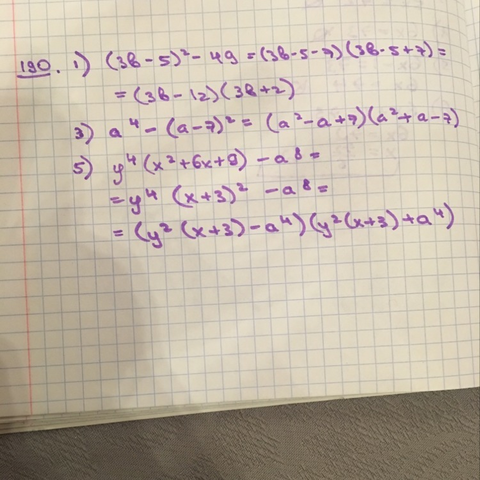 190. 1) (3b-5)² - 49 = (3b-5-7)(3b-5+7)=
= (3b-12)(3b+2)
3) a⁴ - (a-7)² = (a²-a+7)(a²+a-7)
5) y⁴(x²+6x+9) - a⁸ =
= y⁴ (x+3)² - a⁸ =
= (y² (x+3) - a⁴)(y²(x+3)+a⁴)